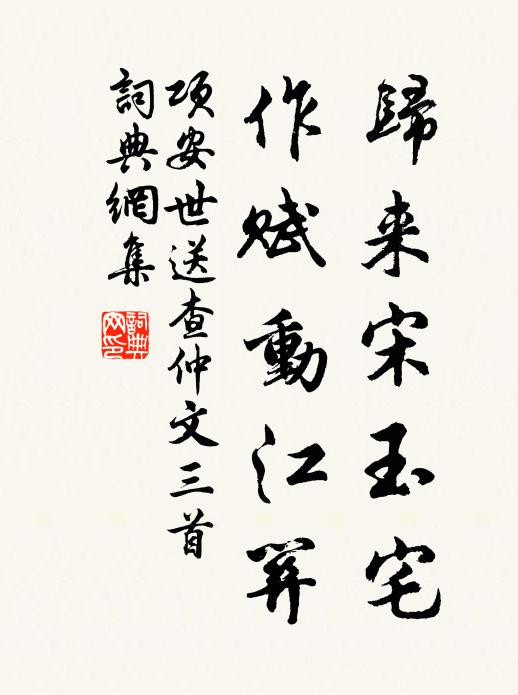 歸来宋玉宅
作賦動江關
項安世送查仲文三首
詞典網集
詞典网印